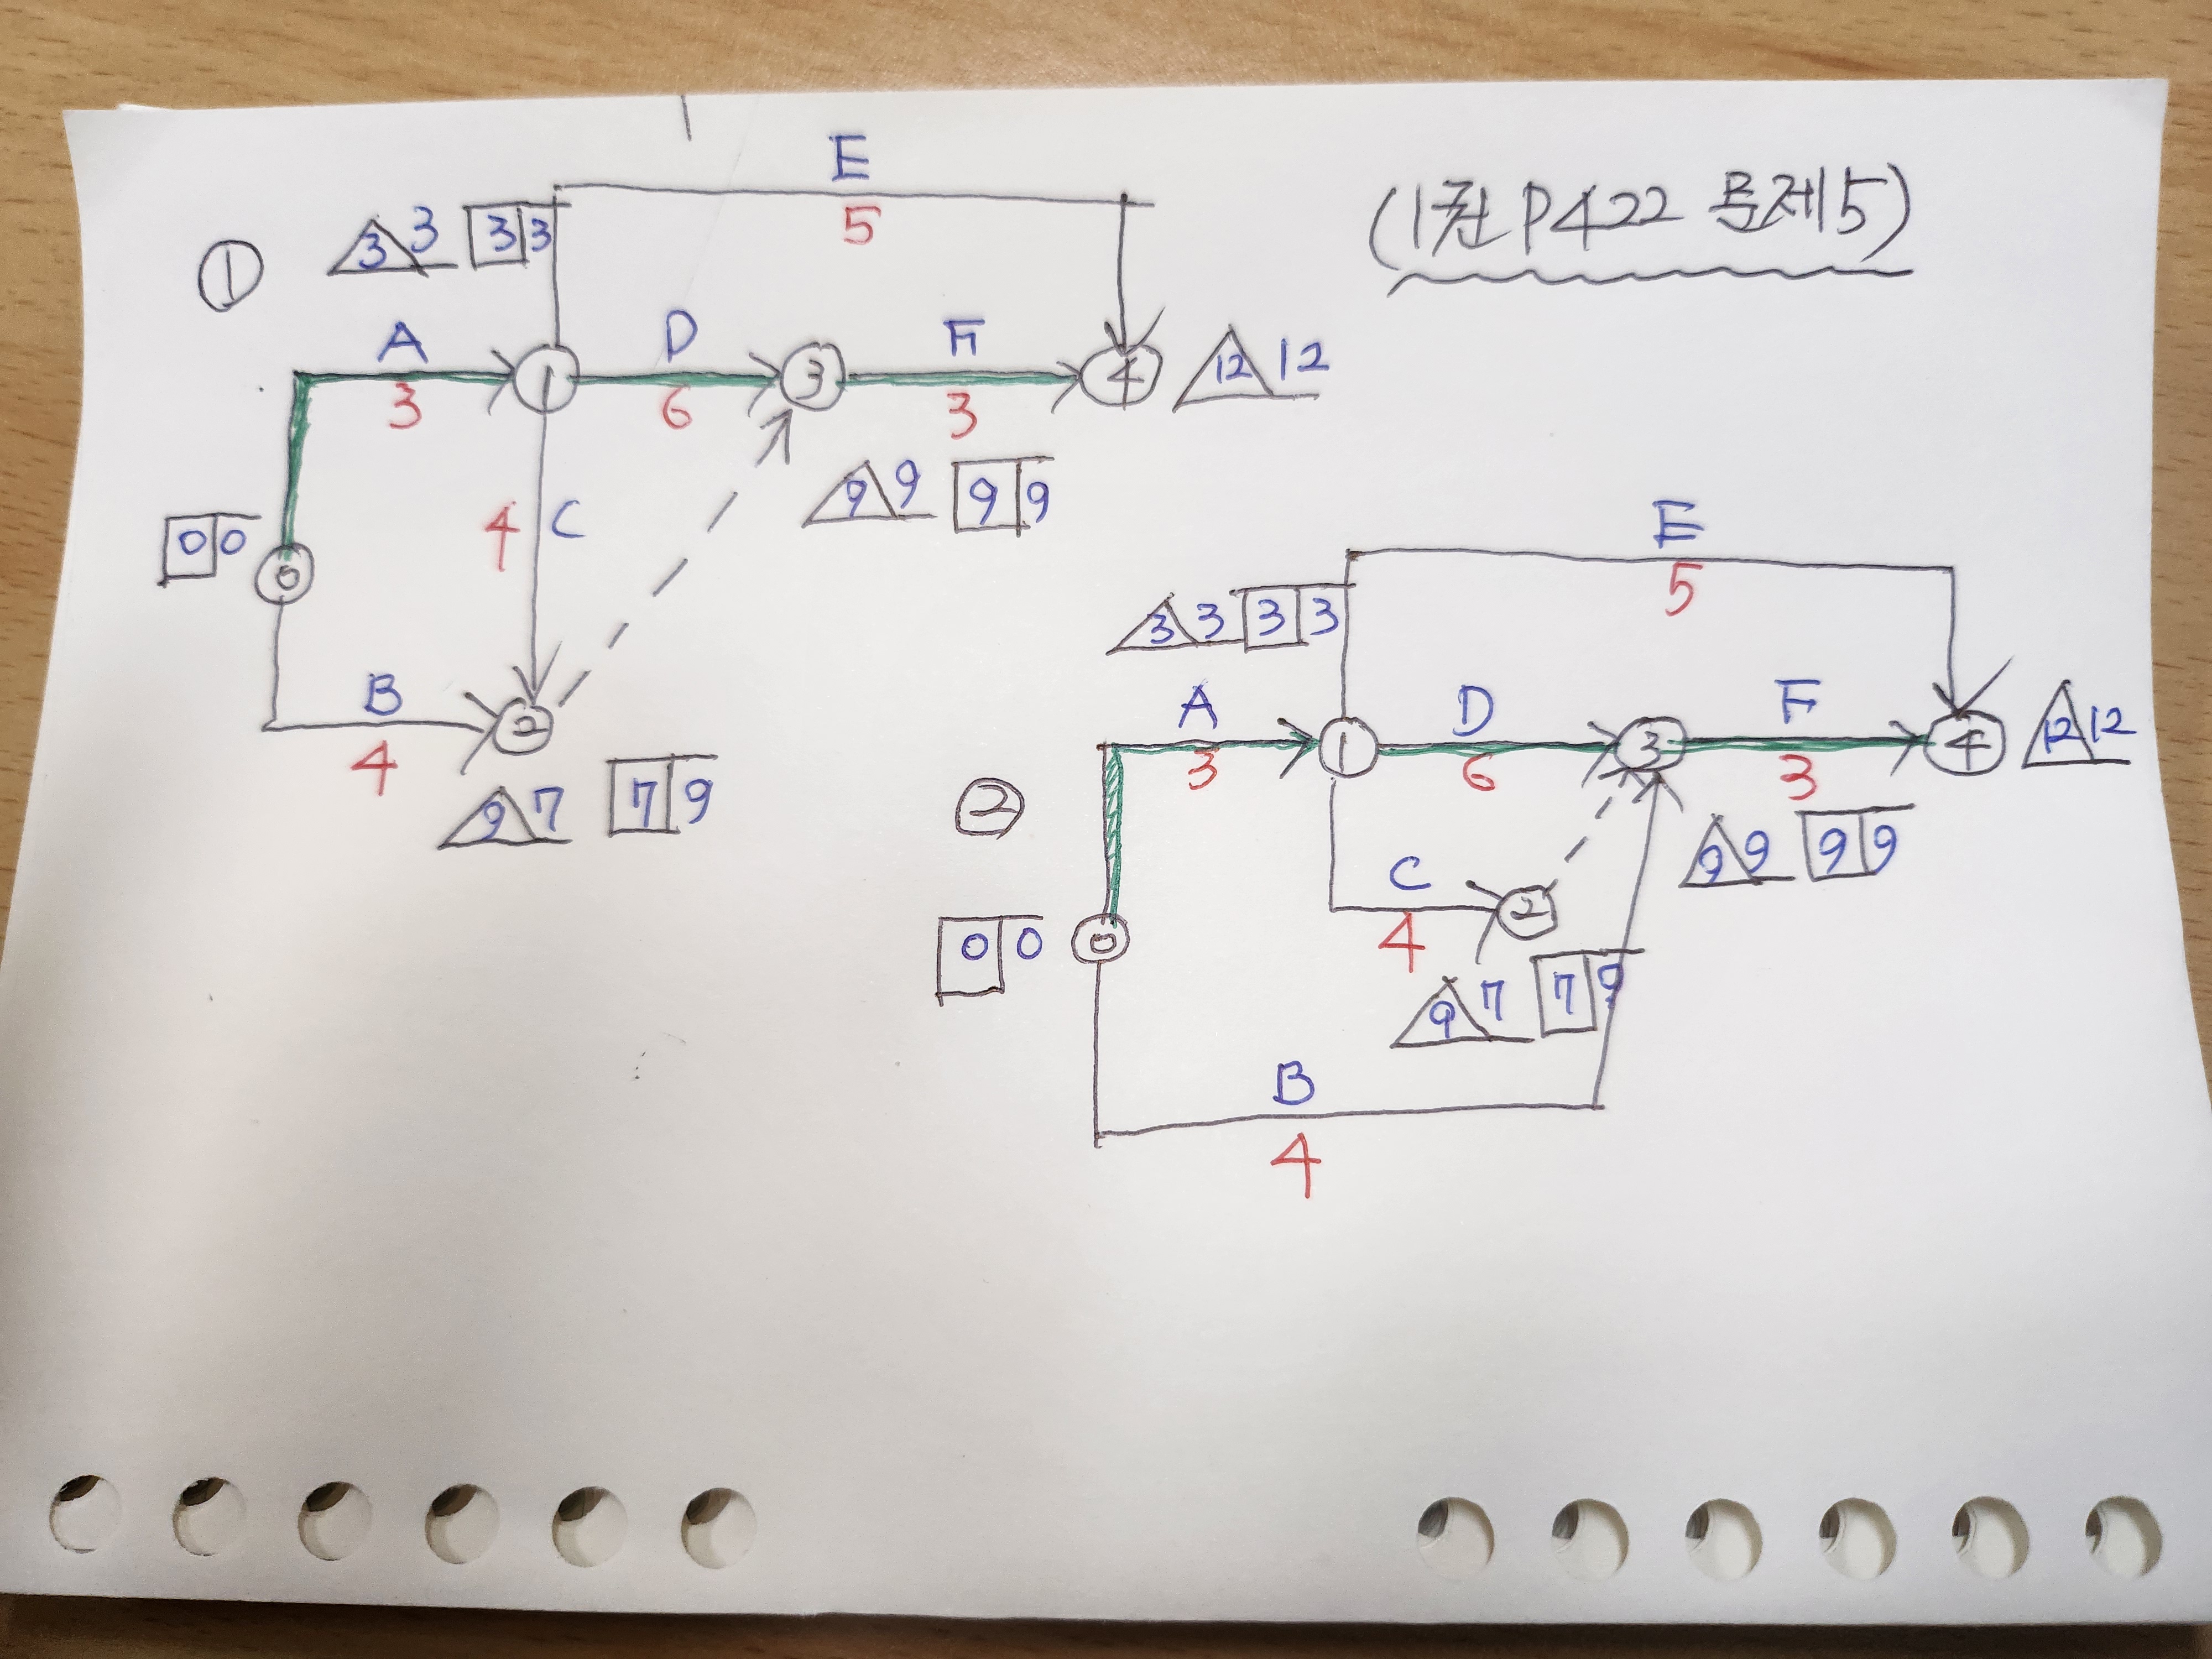 (1권 P422 문제5)
①
E
5
3 3 3 3
A
3
1
D
6
3
F
3
4
12 12
0 0
0
4 C
9 9 9 9
B
4
2
9 7 7 9
②
E
5
3 3 3 3
A
3
1
D
6
3
F
3
4
12 12
0 0
0
C
4
2
9 9 9 9
9 7 7 9
B
4